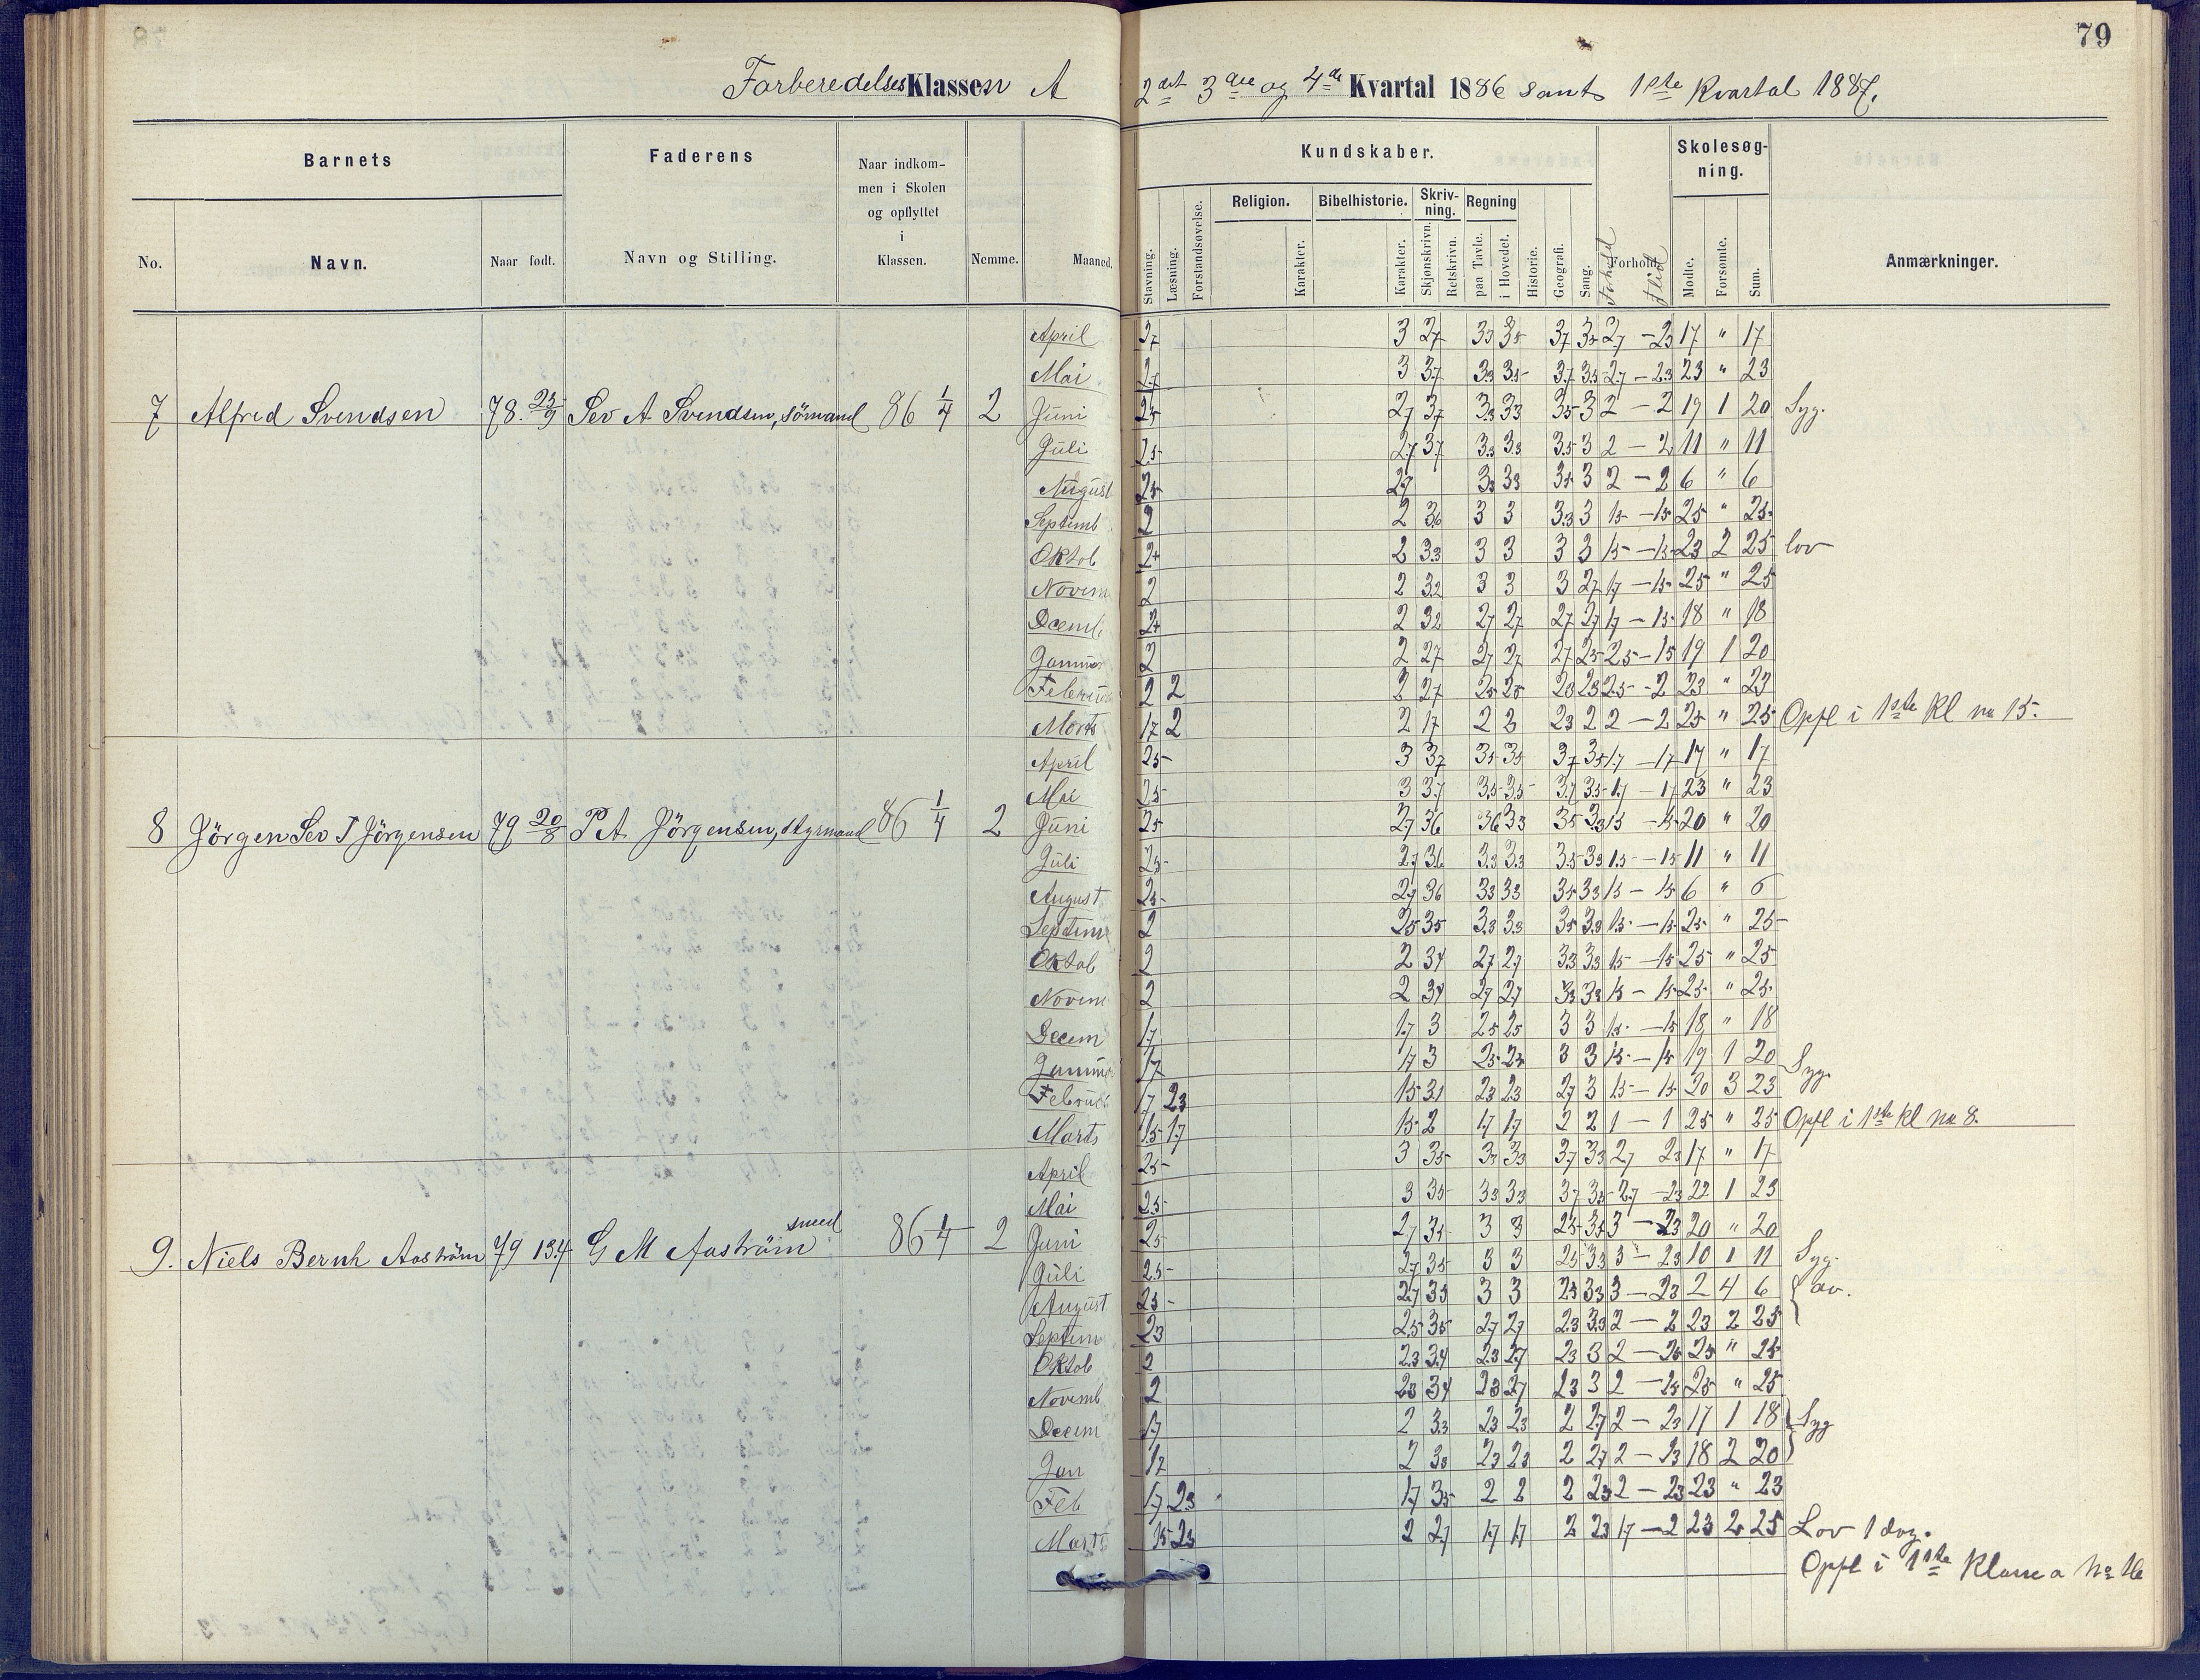 79
Forberedelses Klassen A 2det 3die og 4de Kvartal 1886 samt 1ste Kvartal 1887.
Barnets Faderens Naar indkommen i Skolen og opflyttet i Klassen. Nemme. Maaned. Kundskaber. Skolesøgning. Anmærkninger.
No. Navn. Naar født. Navn og Stilling.
Stavning. Læsning. Forstandsøvelse. Religion. Karakter. Bibelhistorie. Karakter. Skrivning. Skjønskrivn. Retskrivn. Regning paa Tavle. i Hovedet. Historie. Geografi. Sang. Forhold. Forhold Flid Mødte. Forsømte. Sum.
April 27 3 27 33 35 37 35 27 - 23 17 " 17
Mai 27 3 37 33 35 37 35 27 - 23 23 " 23
7 Alfred Svendsen 78. 23/9 Sev A Svendsen, sömand 86 1/4 2 Juni 25 27 37 33 33 35 3 2 - 2 19 1 20 Syg.
Juli 25 27 37 33 33 35 3 2 - 2 11 " 11
August 25 27 33 33 35 3 2 - 2 6 " 6
Septemb 2 2 36 3 3 33 3 15 - 15 25 " 25
Oktob 2 2 33 3 3 3 3 15 - 15 23 2 25 lov
Novem 2 2 32 3 3 3 27 17 - 15 25 " 25
Decemb 2 2 32 27 27 27 27 17 - 15 18 " 18
Januar 2 2 27 27 27 27 25 25 - 15 19 1 20
Februar 2 2 2 27 25 25 23 23 25 - 2 23 " 23
Marts 17 2 2 17 2 2 23 2 2 - 2 25 " 25 Opfl i 1ste Kl no 15.
April 25 3 37 35 35 37 35 17 - 17 17 " 17
Mai 25 3 37 35 35 37 35 17 - 17 23 " 23
8 Jörgen Sev T Jörgensen 79 20/8 P A Jörgensen, styrmand 86 1/4 2 Juni 25 27 36 36 33 35 33 15 - 15 20 " 20
Juli 25 27 36 33 33 35 33 15 - 15 11 " 11
August 25 27 36 33 33 35 33 15 - 15 6 " 6
Septem 2 25 35 33 33 35 33 15 - 15 25 " 25
Oktob 2 2 34 27 27 33 33 15 - 15 25 " 25
Novem 2 2 34 27 27 33 33 15 - 15 25 " 25
Decem 17 17 3 25 25 3 3 15 - 15 18 " 18
Januar 17 17 3 25 25 3 3 15 - 15 19 1 20
Februar 17 23 15 31 23 23 27 3 15 - 15 20 3 23 Syg.
Marts 15 17 15 2 17 17 2 2 1 - 1 25 " 25 Opfl i 1ste Kl no 8.
April 25 3 35 33 33 37 33 27 23 17 " 17
Mai 25 3 35 33 33 37 35 27 - 23 22 1 23
9. Niels Bernh Aaström 79 13.4 G M Aaström smed 86 1/4 2 Juni 25 27 35 3 3 25 35 3 - 23 20 " 20
Juli 25 27 35 3 3 25 33 3 - 23 10 1 11 Syg.
August 25 27 35 3 3 25 33 3 - 23 2 4 6
Septem 23 25 35 27 27 23 33 2 - 2 23 2 25
Oktob 2 23 34 23 27 23 3 2 - 25 25 " 25
Novemb 2 23 34 23 27 23 3 2 - 25 25 " 25
Decem 17 2 33 23 23 2 27 2 - 23 17 1 18 Syg
Jan 17 2 33 23 23 2 27 2 - 23 18 2 20
Feb 17 23 17 35 2 2 2 23 2 - 23 23 " 23
Marts 15 23 2 27 17 17 2 23 17 - 2 23 2 25 Lov 1 dag.
Opfl i 1ste Klasse a No